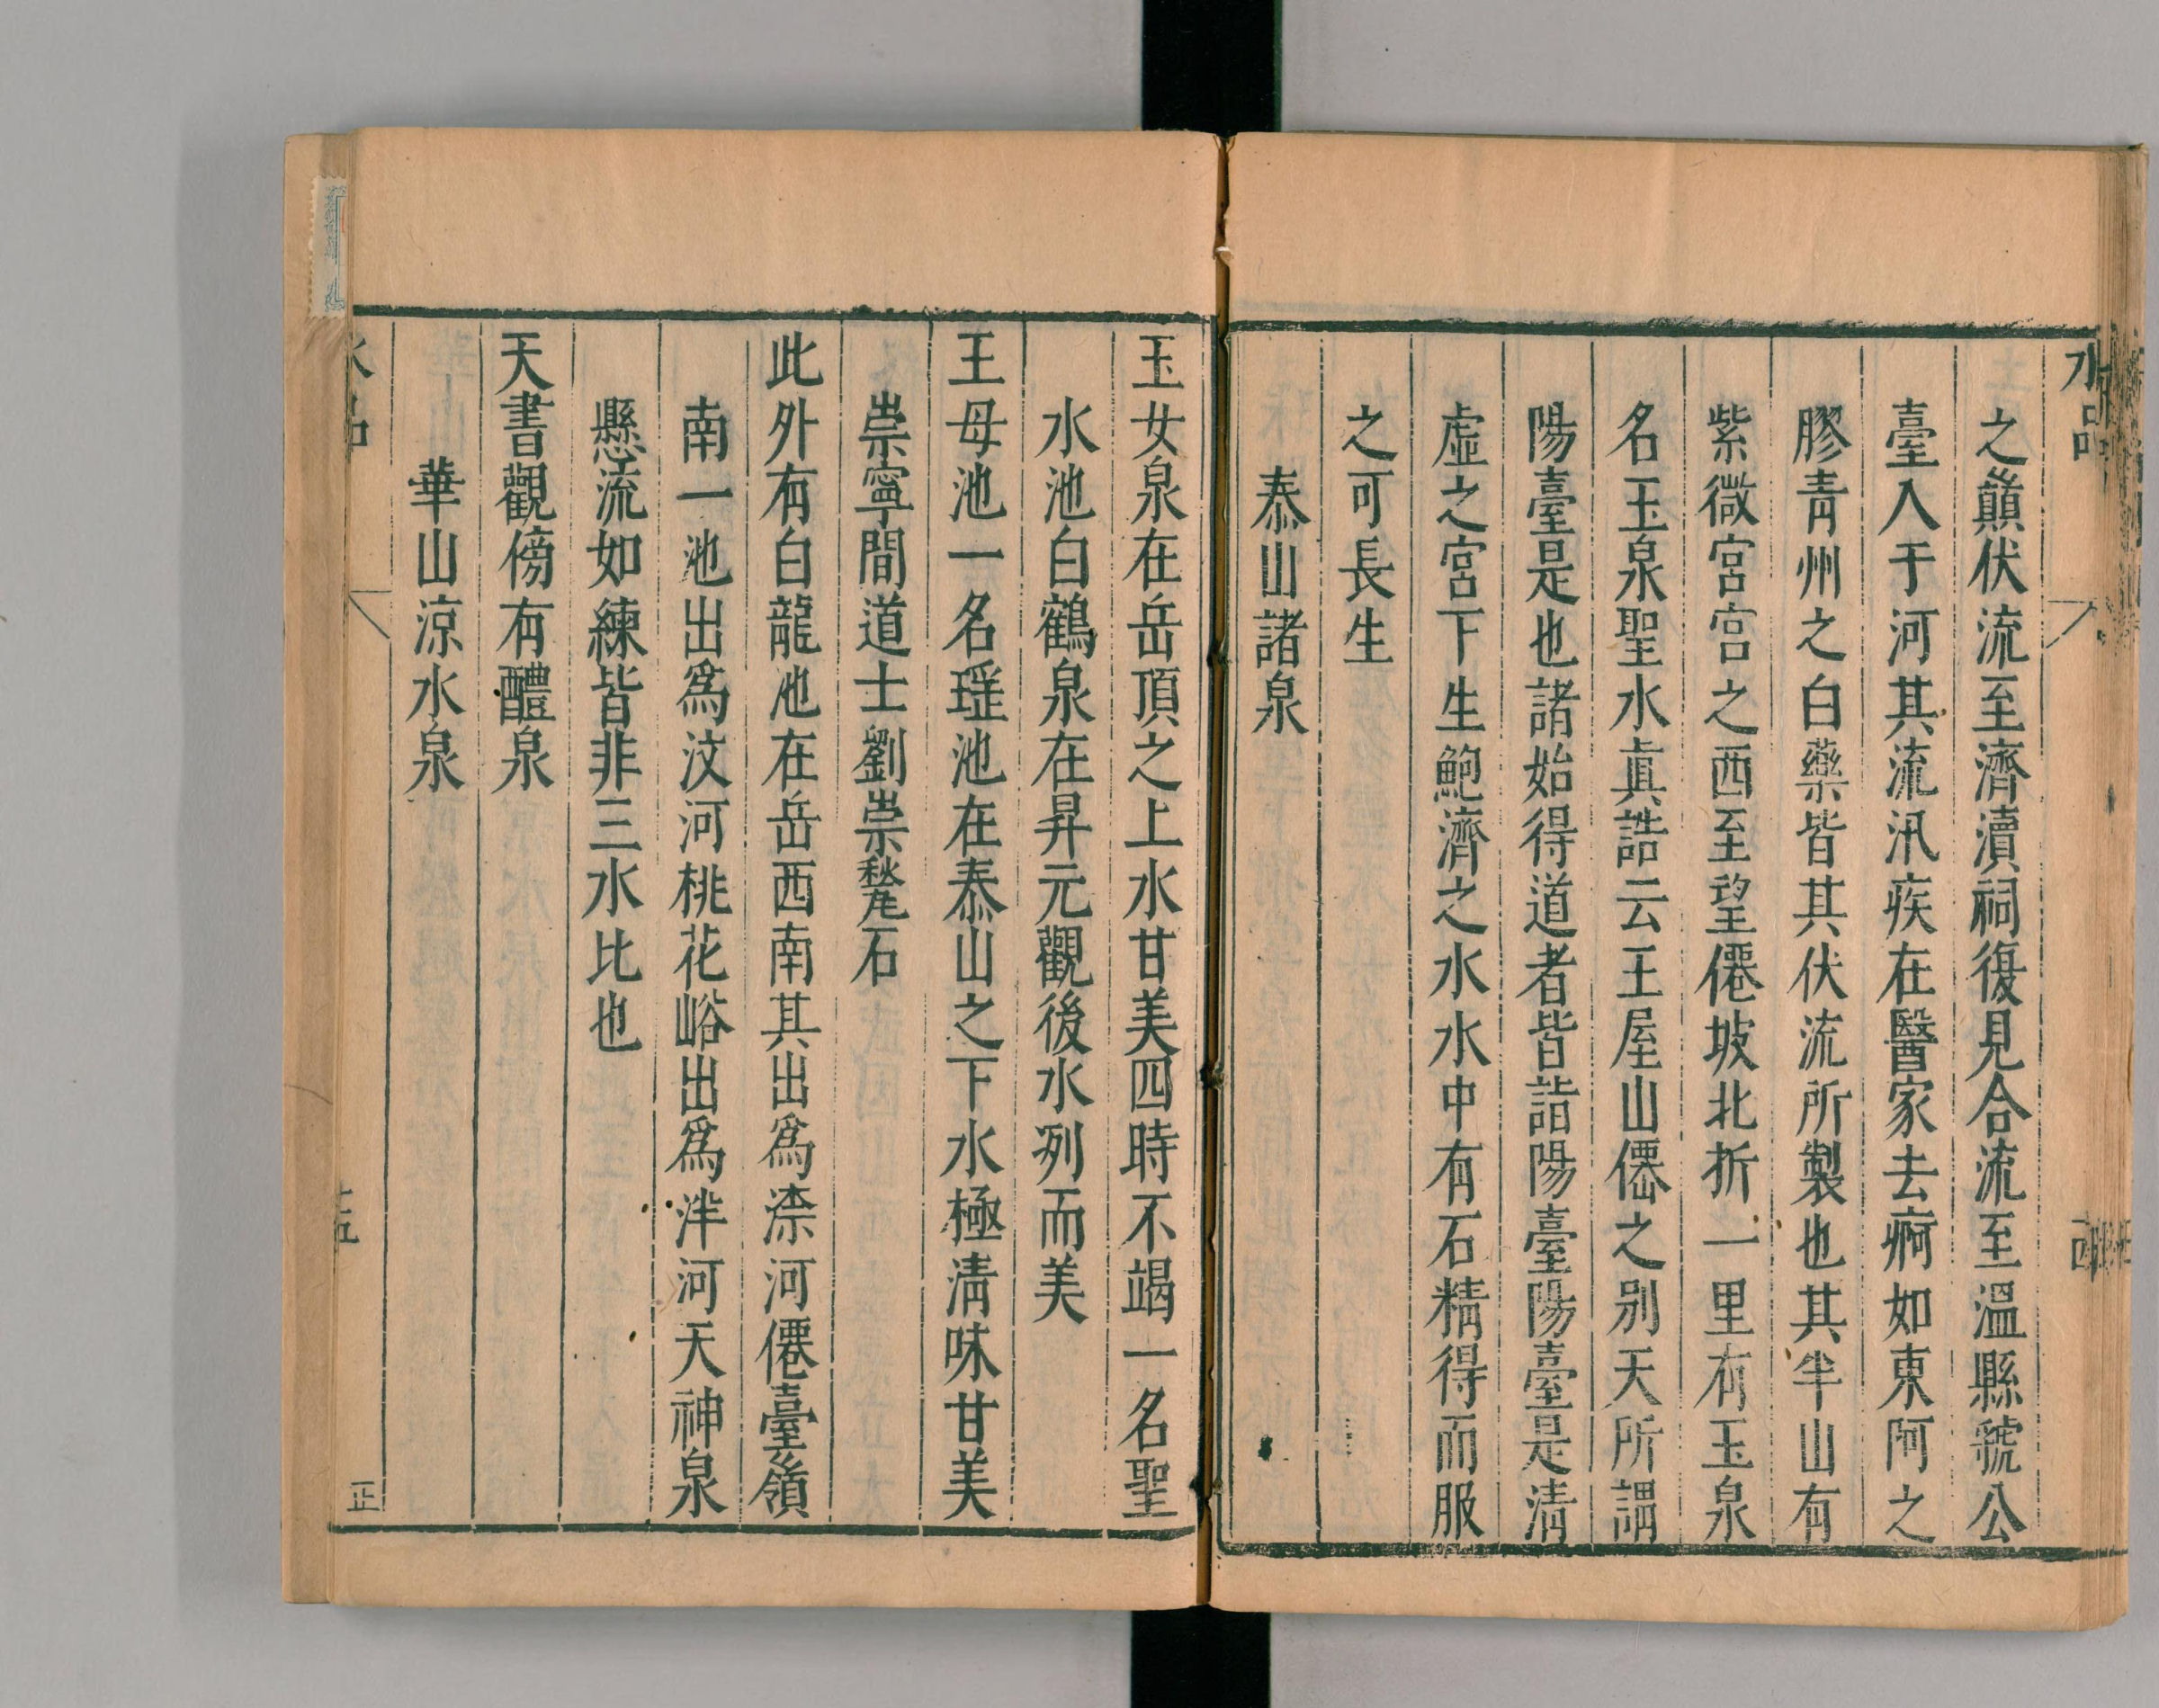 水品
之巔伏流至濟瀆祠復見合流至溫縣虢公
臺入于河其流汛疾在醫家去痾如東阿之
膠青州之白藥皆其伏流所製也其半山有
紫微宮宮之西至望僊坡北折一里有玉泉
名玉泉聖水眞誥云王屋山僊之别天所謂
陽臺是也諸始得道者皆詣陽臺陽臺是清
虛之宮下生鮑濟之水水中有石精得而服
之可長生
泰山諸泉
玉女泉在岳頂之上水甘美四時不竭一名聖
水池白鶴泉在昇元觀後水冽而美
王母池一名瑶池在泰山之下水極清味甘美
崇寧間道士劉崇㲠石
此外有白龍池在岳西南其出爲渿河僊臺嶺
南一池出爲汶河桃花峪出爲泮河天神泉
懸流如練皆非三水比也
天書觀傍有醴泉
華山涼水泉
水品
十五
正